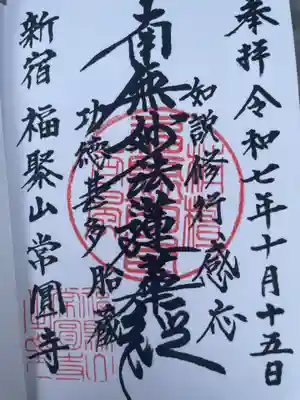 奉拝 令和七年十月十五日
如説修行感応
南無妙法蓮華経
功徳甚多胎蔵
新宿 福聚山常圓寺